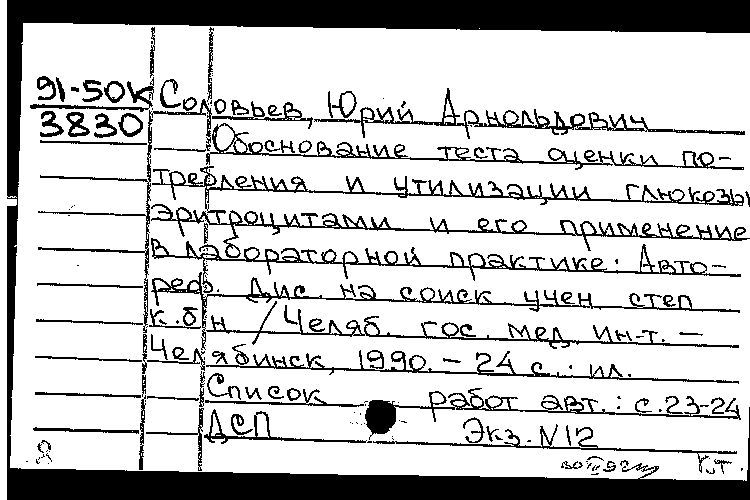 91-50к Соловьев, Юрий Арнольдович
3830
Обоснование теста оценки по-
требления и утилизации глюкозы
эритроцитами и его применение
в лабораторной практике: Авто-
реф. Дис. на соиск учен степ
к.б н / Челяб. гос. мед. ин-т. –
Челябинск, 1990. – 24 с.: ил.
Список работ авт.: с.23-24
ДСП Экз. N12
К.Т.